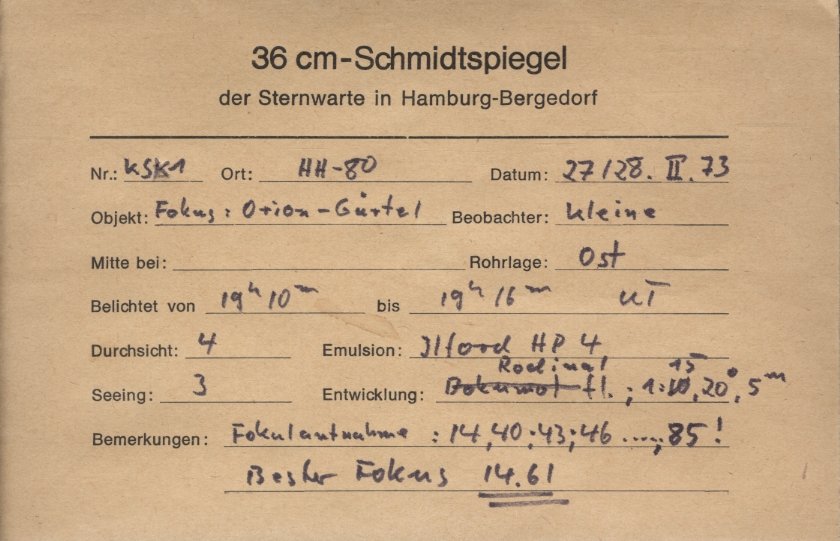 36 cm-Schmidtspiegel
der Sternwarte in Hamburg-Bergedorf
Nr.: KSK1 Ort: HH-80 Datum: 27/28. II. 73
Objekt: Fokus: Orion-Gürtel Beobachter: Kleine
Mitte bei: Rohrlage: Ost
Belichtet von 19h 10m bis 19h 16m UT
Durchsicht: 4 Emulsion: Ilford HP 4
Rodinal 15
Seeing: 3 Entwicklung: fl.; 1:10, 20°, 5m
Bemerkungen: Fokusaufnahme: 14,40; 43; 46 ....., 85!
Bester Fokus 14.61